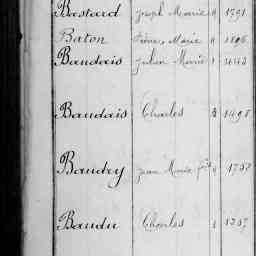 Bastard Joseph Marie 4 1791
Baton Marie 1896
Baudais Julien Marie 1 1443
Baudais Charles 3 1498
Baudry Jean Marie 4 1758
Baudu Charles 1 1257